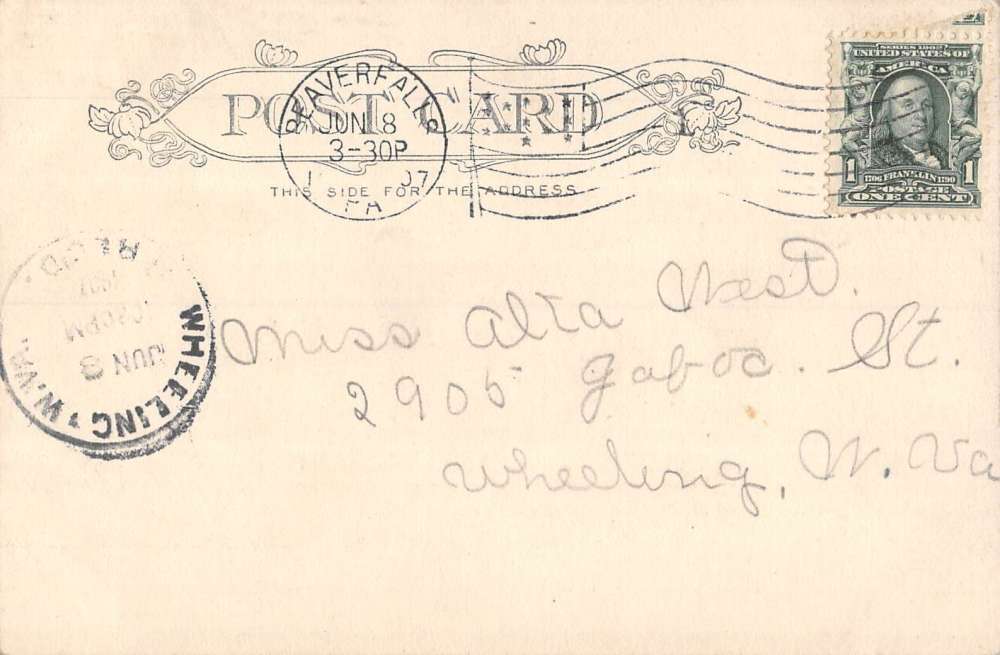 POST CARD
THIS SIDE FOR THE ADDRESS
BEAVER FALLS
JUN 8
3-30P
1 07
PA
SERIES 1902
UNITED STATES OF
AMERICA
1 1706 FRANKLIN 1790 1
POSTAGE
ONE CENT
REC'D.
1907
PM
JUN 8
WHEELING, W. VA.
Miss Alta West.
2905 Jacob. St.
Wheeling, W. Va